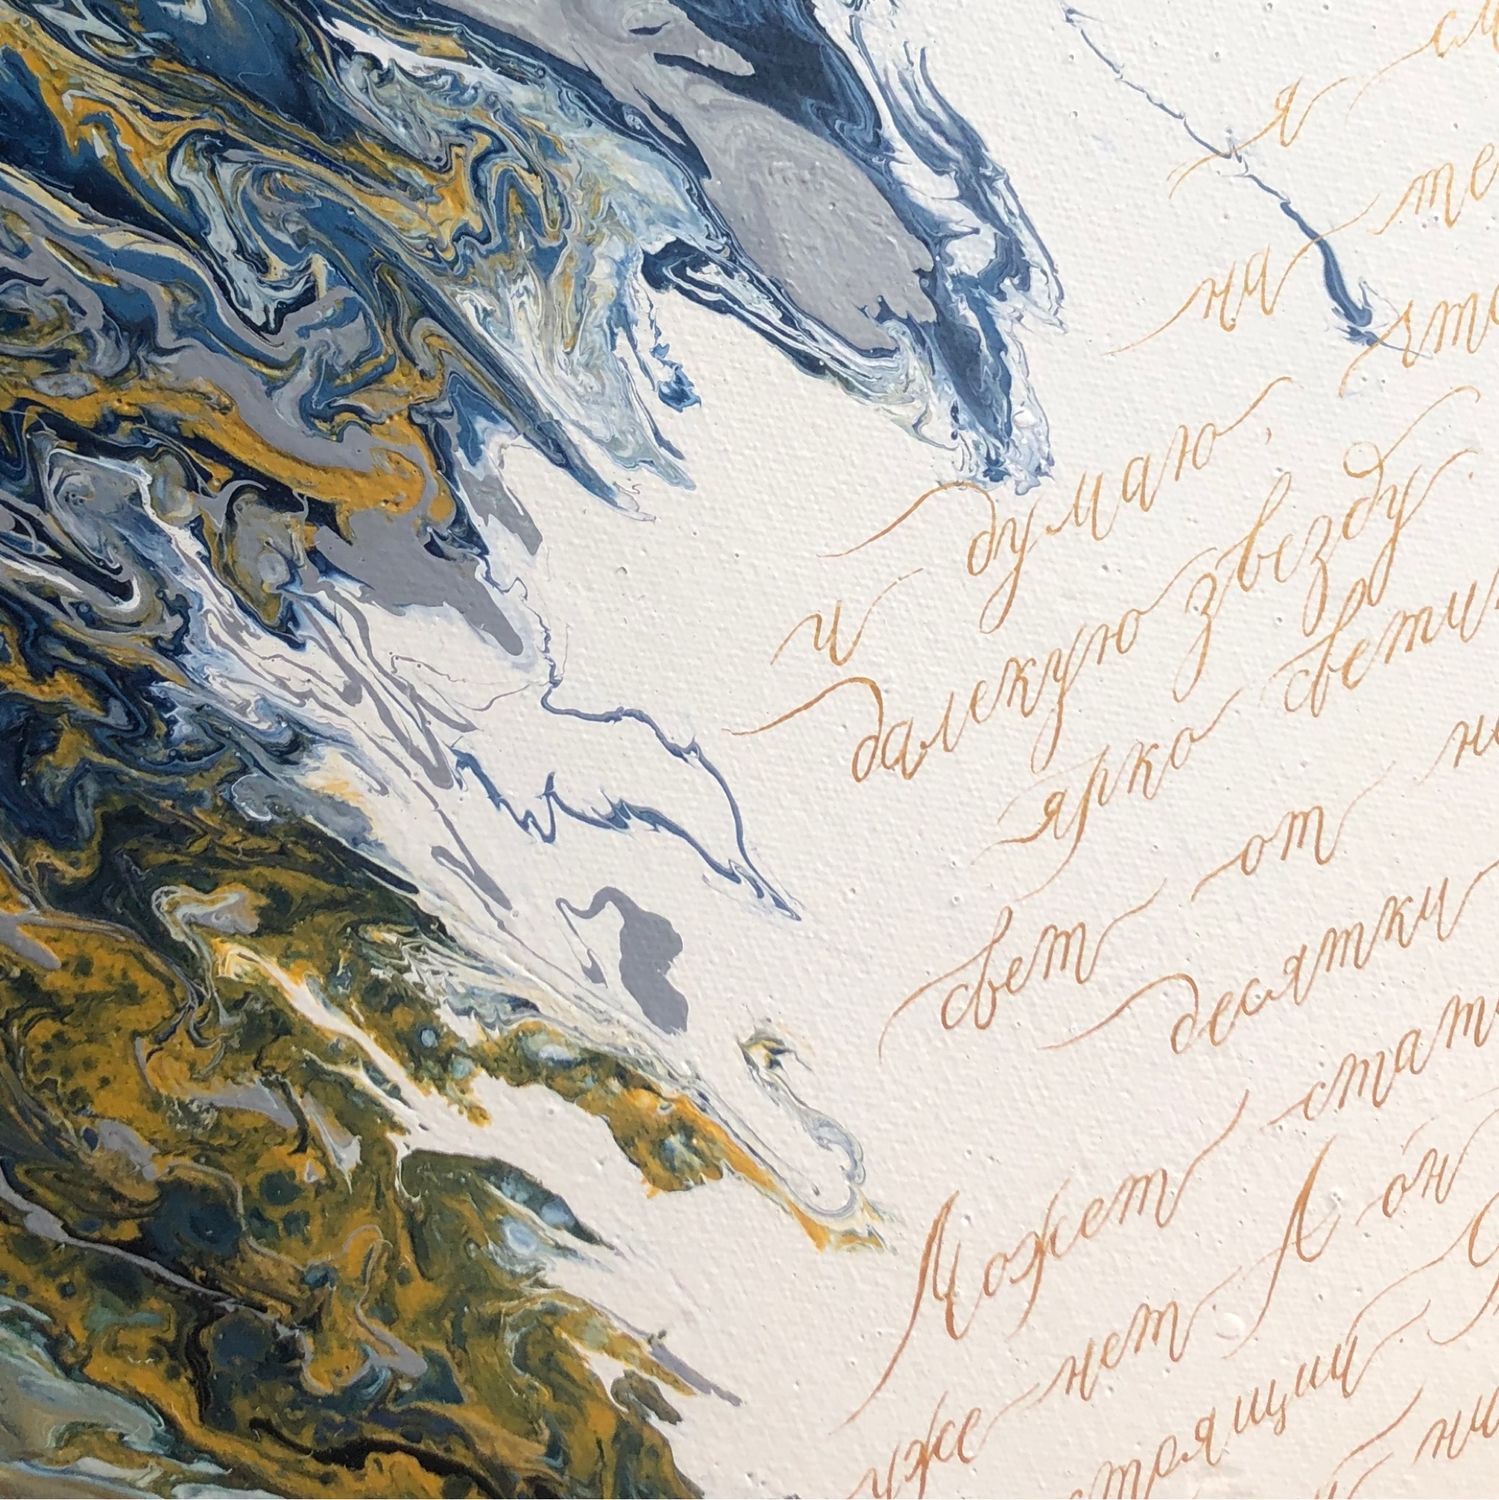 я см
на те
что
и думаю,
далекую звезду.
ярко свети
свет от не
десятки
Может стат
уже нет А он
стрящий
ни